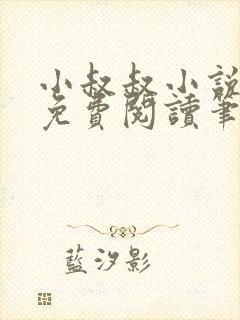 小叔叔小說
免費閱讀筆
藍汐影